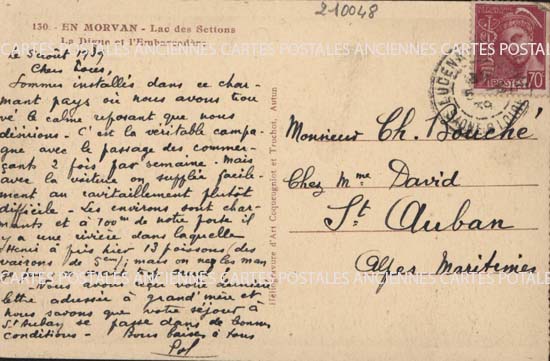 210048
130. - EN MORVAN - Lac des Settons
La Digue et l'Embarcadère
Le 5 août 1939
Chers
Sommes installés dans ce char-
mant pays où nous avons trou
vé le calme reposant que nous
désirions. C'est la véritable campa-
gne avec le passage des commer-
çants 2 fois par semaine. Mais
avec la voiture on supplée facile-
ment au ravitaillement plutôt
difficile. Les environs sont char-
mants et à 700m de notre porte il
y a une rivière dans laquelle
Henri a pris hier 13 poissons (des
vairons de 5cm); mais on ne les man
Nous avons reçu votre dernière
lettre adressée à grand'mère et
nous savons que votre séjour à
St Auban se passe dans de bonnes
conditions. Bons baisers à tous
Héliogravure d'Art Coqueugniot et Truchot, Autun
POSTES 70c
SAONE-ET-LOIRE
Monsieur Ch. Bouché
Chez Mme David
St Auban
Alpes Maritimes
CARTES POSTALES ANCIENNES CARTES POSTALES ANCIENNES